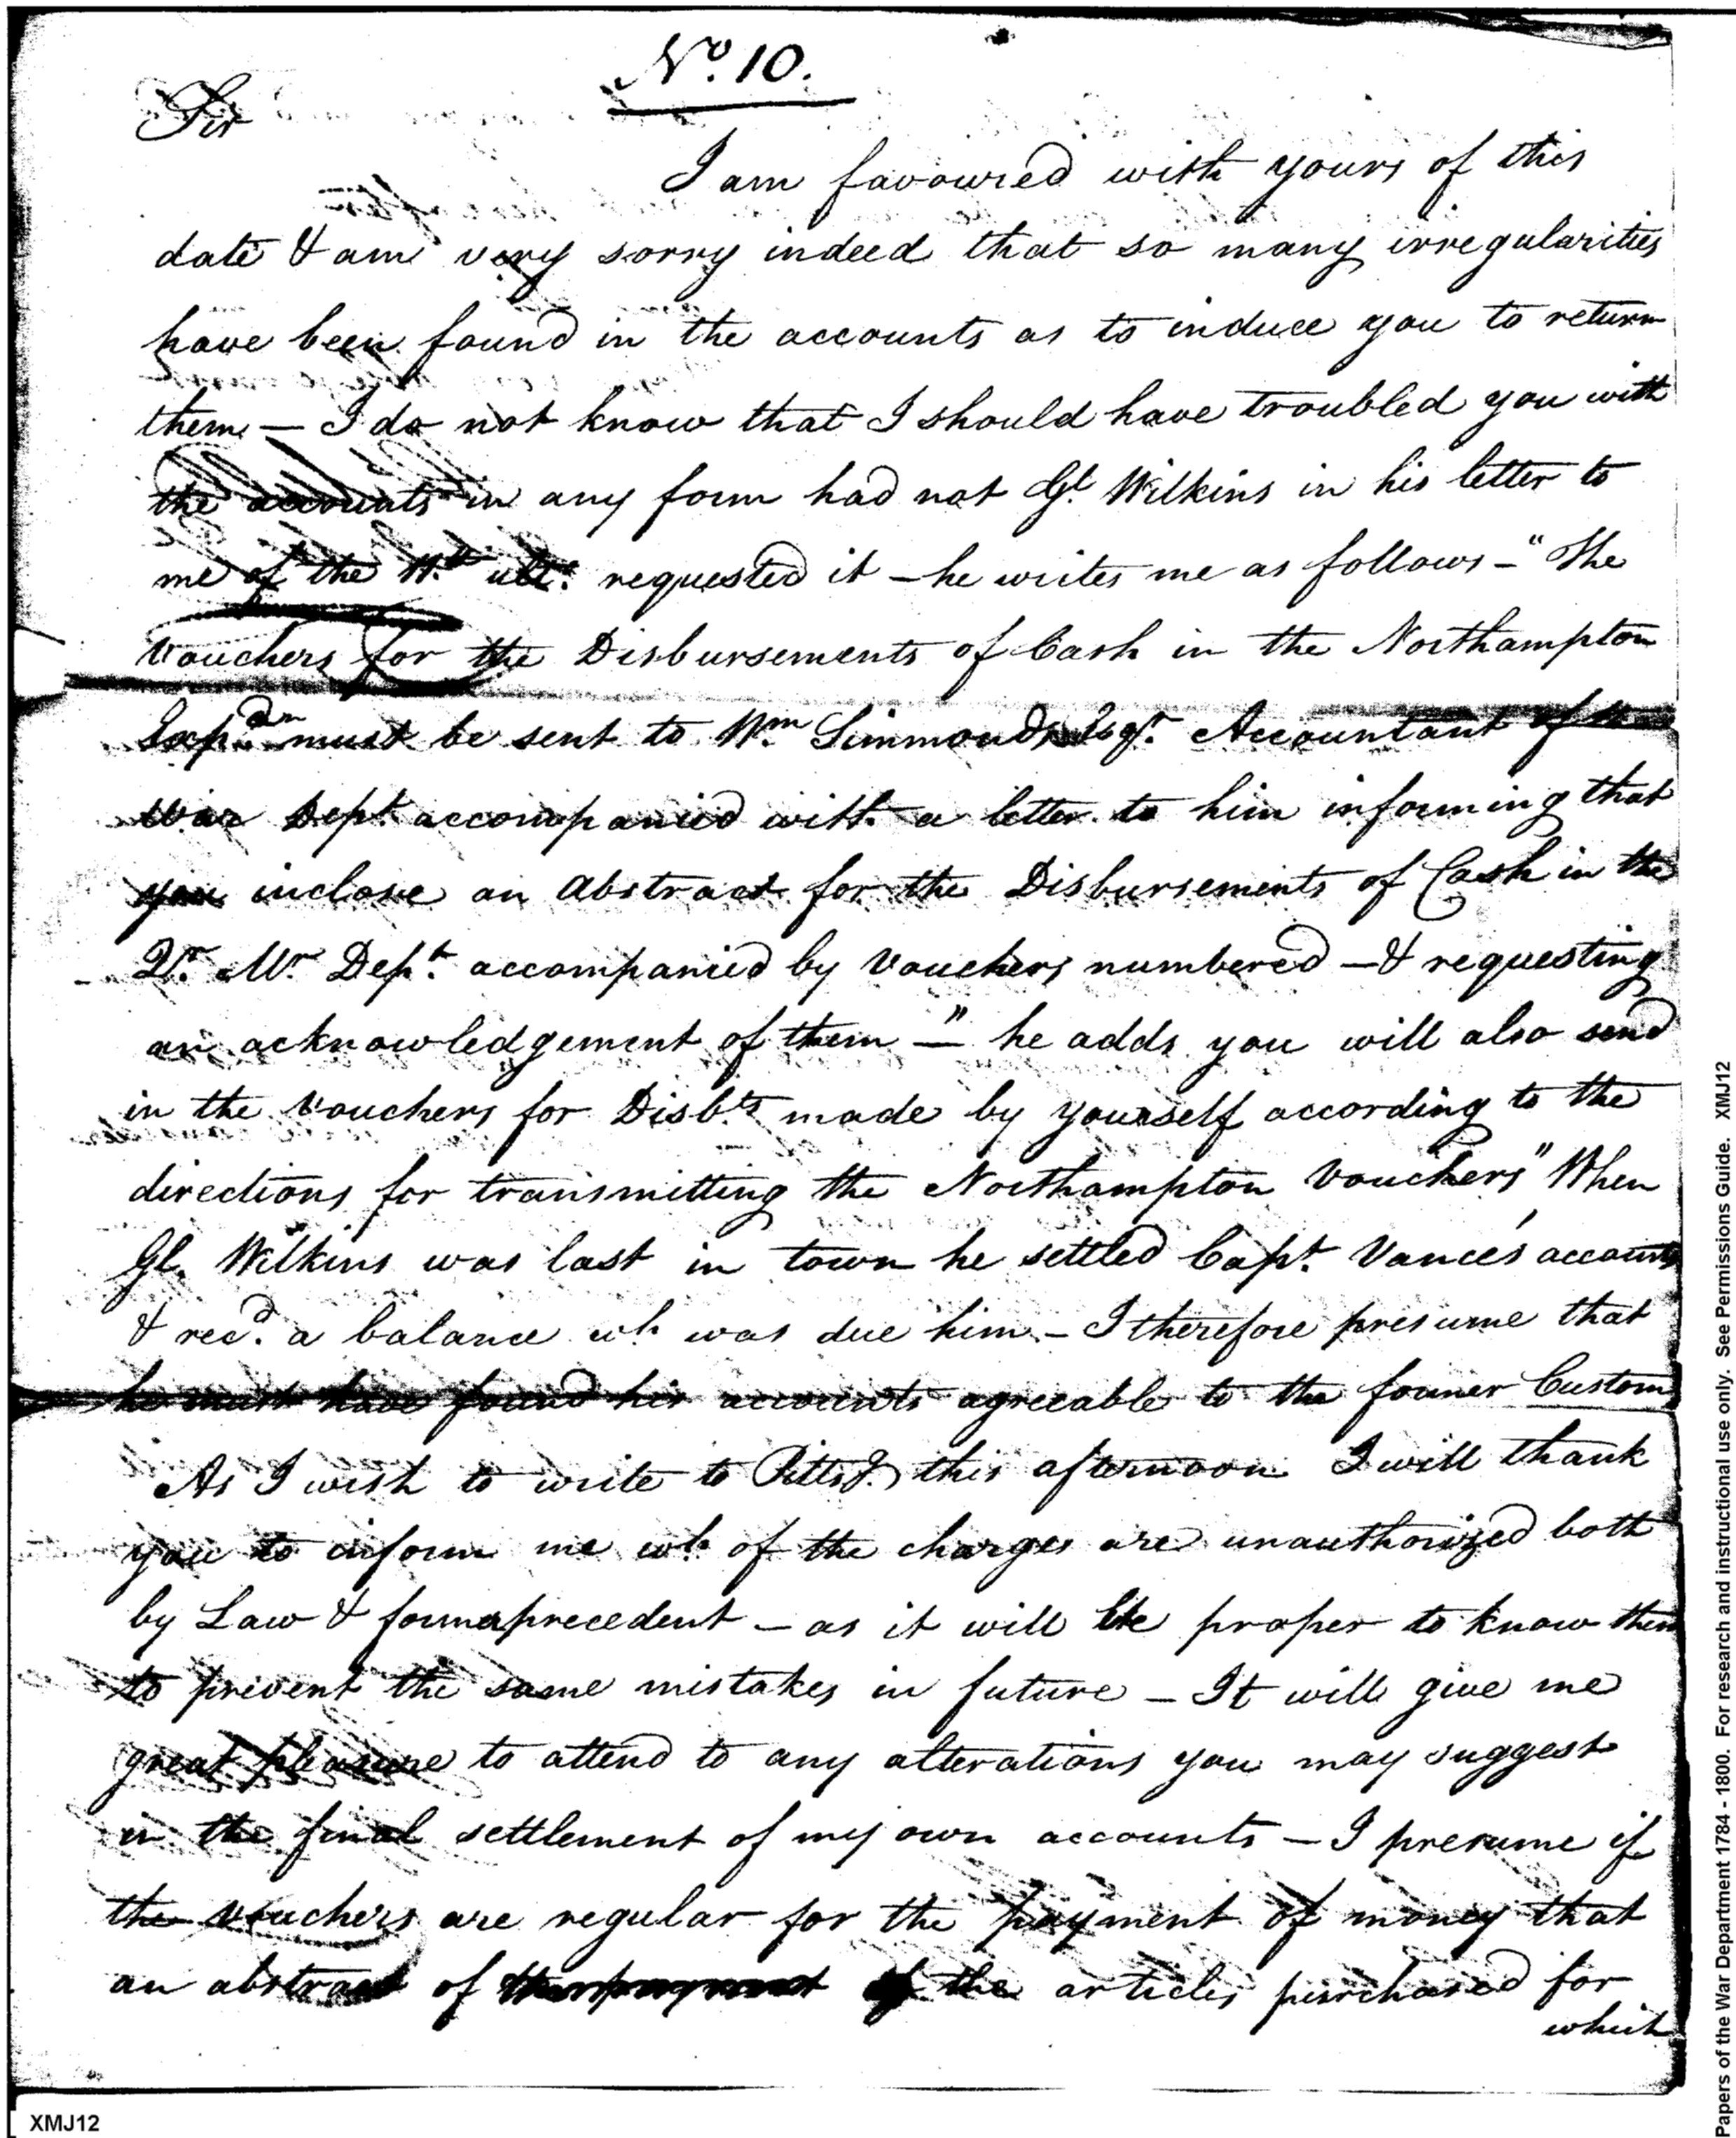 No. 10.
Sir
I am favoured with yours of this
date & am very sorry indeed that so many irregularities
have been found in the accounts as to induce you to return
them — I do not know that I should have troubled you with
the accounts in any form had not Gl. Wilkins in his letter to
me of the 11th ulto. requested it — he writes me as follows — "The
Vouchers for the Disbursements of Cash in the Northampton
Expdn. must be sent to Wm Simmonds Esqr. Accountant of the
War Dept. accompanied with a letter to him informing that
you inclose an Abstract for the Disbursements of Cash in the
Qr. Mr Dept. accompanied by Vouchers numbered — & requesting
an acknowledgement of them —" he adds you will also send
in the Vouchers for Disbts. made by yourself according to the
directions for transmitting the Northampton Vouchers" When
Gl. Wilkins was last in town he settled Capt. Vance's accounts
& recd. a balance wh. was due him — I therefore presume that
he must have found his accounts agreeable to the former Custom
As I wish to write to Pittsg. this afternoon I will thank
you to inform me wh. of the charges are unauthorized both
by Law & former precedent — as it will be proper to know them
to prevent the same mistakes in future — It will give me
great pleasure to attend to any alterations you may suggest
in the final settlement of my own accounts — I presume if
the vouchers are regular for the payment of money that
an abstract of the articles purchased for
which
XMJ12
Papers of the War Department 1784 - 1800. For research and instructional use only. See Permissions Guide. XMJ12